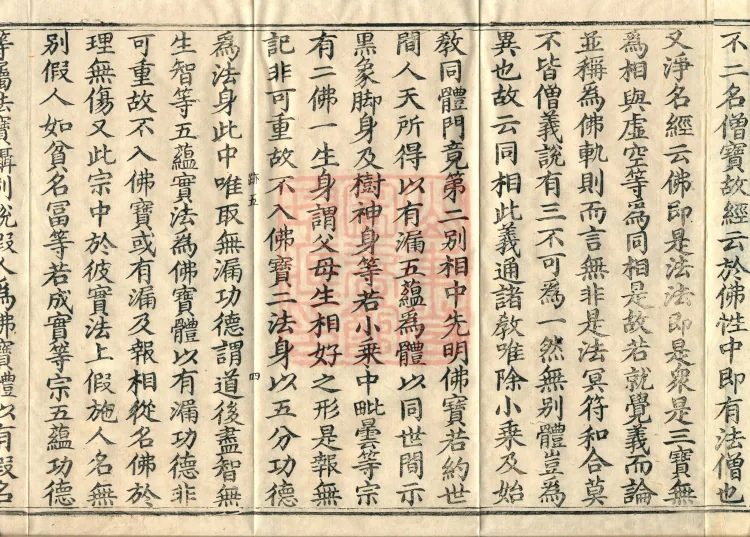 不二名僧寶故經云於佛性中即有法僧也
又淨名經云佛即是法法即是衆是三寶無
為相與虛空等爲同相是故若就覺義而論
並稱為佛軌則而言無非是法冥符和合莫
不皆僧義說有三不可為一然無別體豈為
異也故云同相此義通諸教唯除小乘及始
教同體門竟第二別相中先明佛寶若約世
間人天所得以有漏五蘊為體以同世間示
黑象脚身及樹神身等若小乘中毗曇等宗
有二佛一生身謂父母生相好之形是報無
記非可重故不入佛寶二法身以五分功德
跡五
四
爲法身此中唯取無漏功德謂道後盡智無
生智等五蘊實法為佛寶體以有漏功德非
可重故不入佛寶或有漏及報相從名佛於
理無傷又此宗中於彼實法上假施人名無
別假人如貧名冨等若成實等宗五蘊功德
等屬法寶攝別說假人為佛寶體以有假名